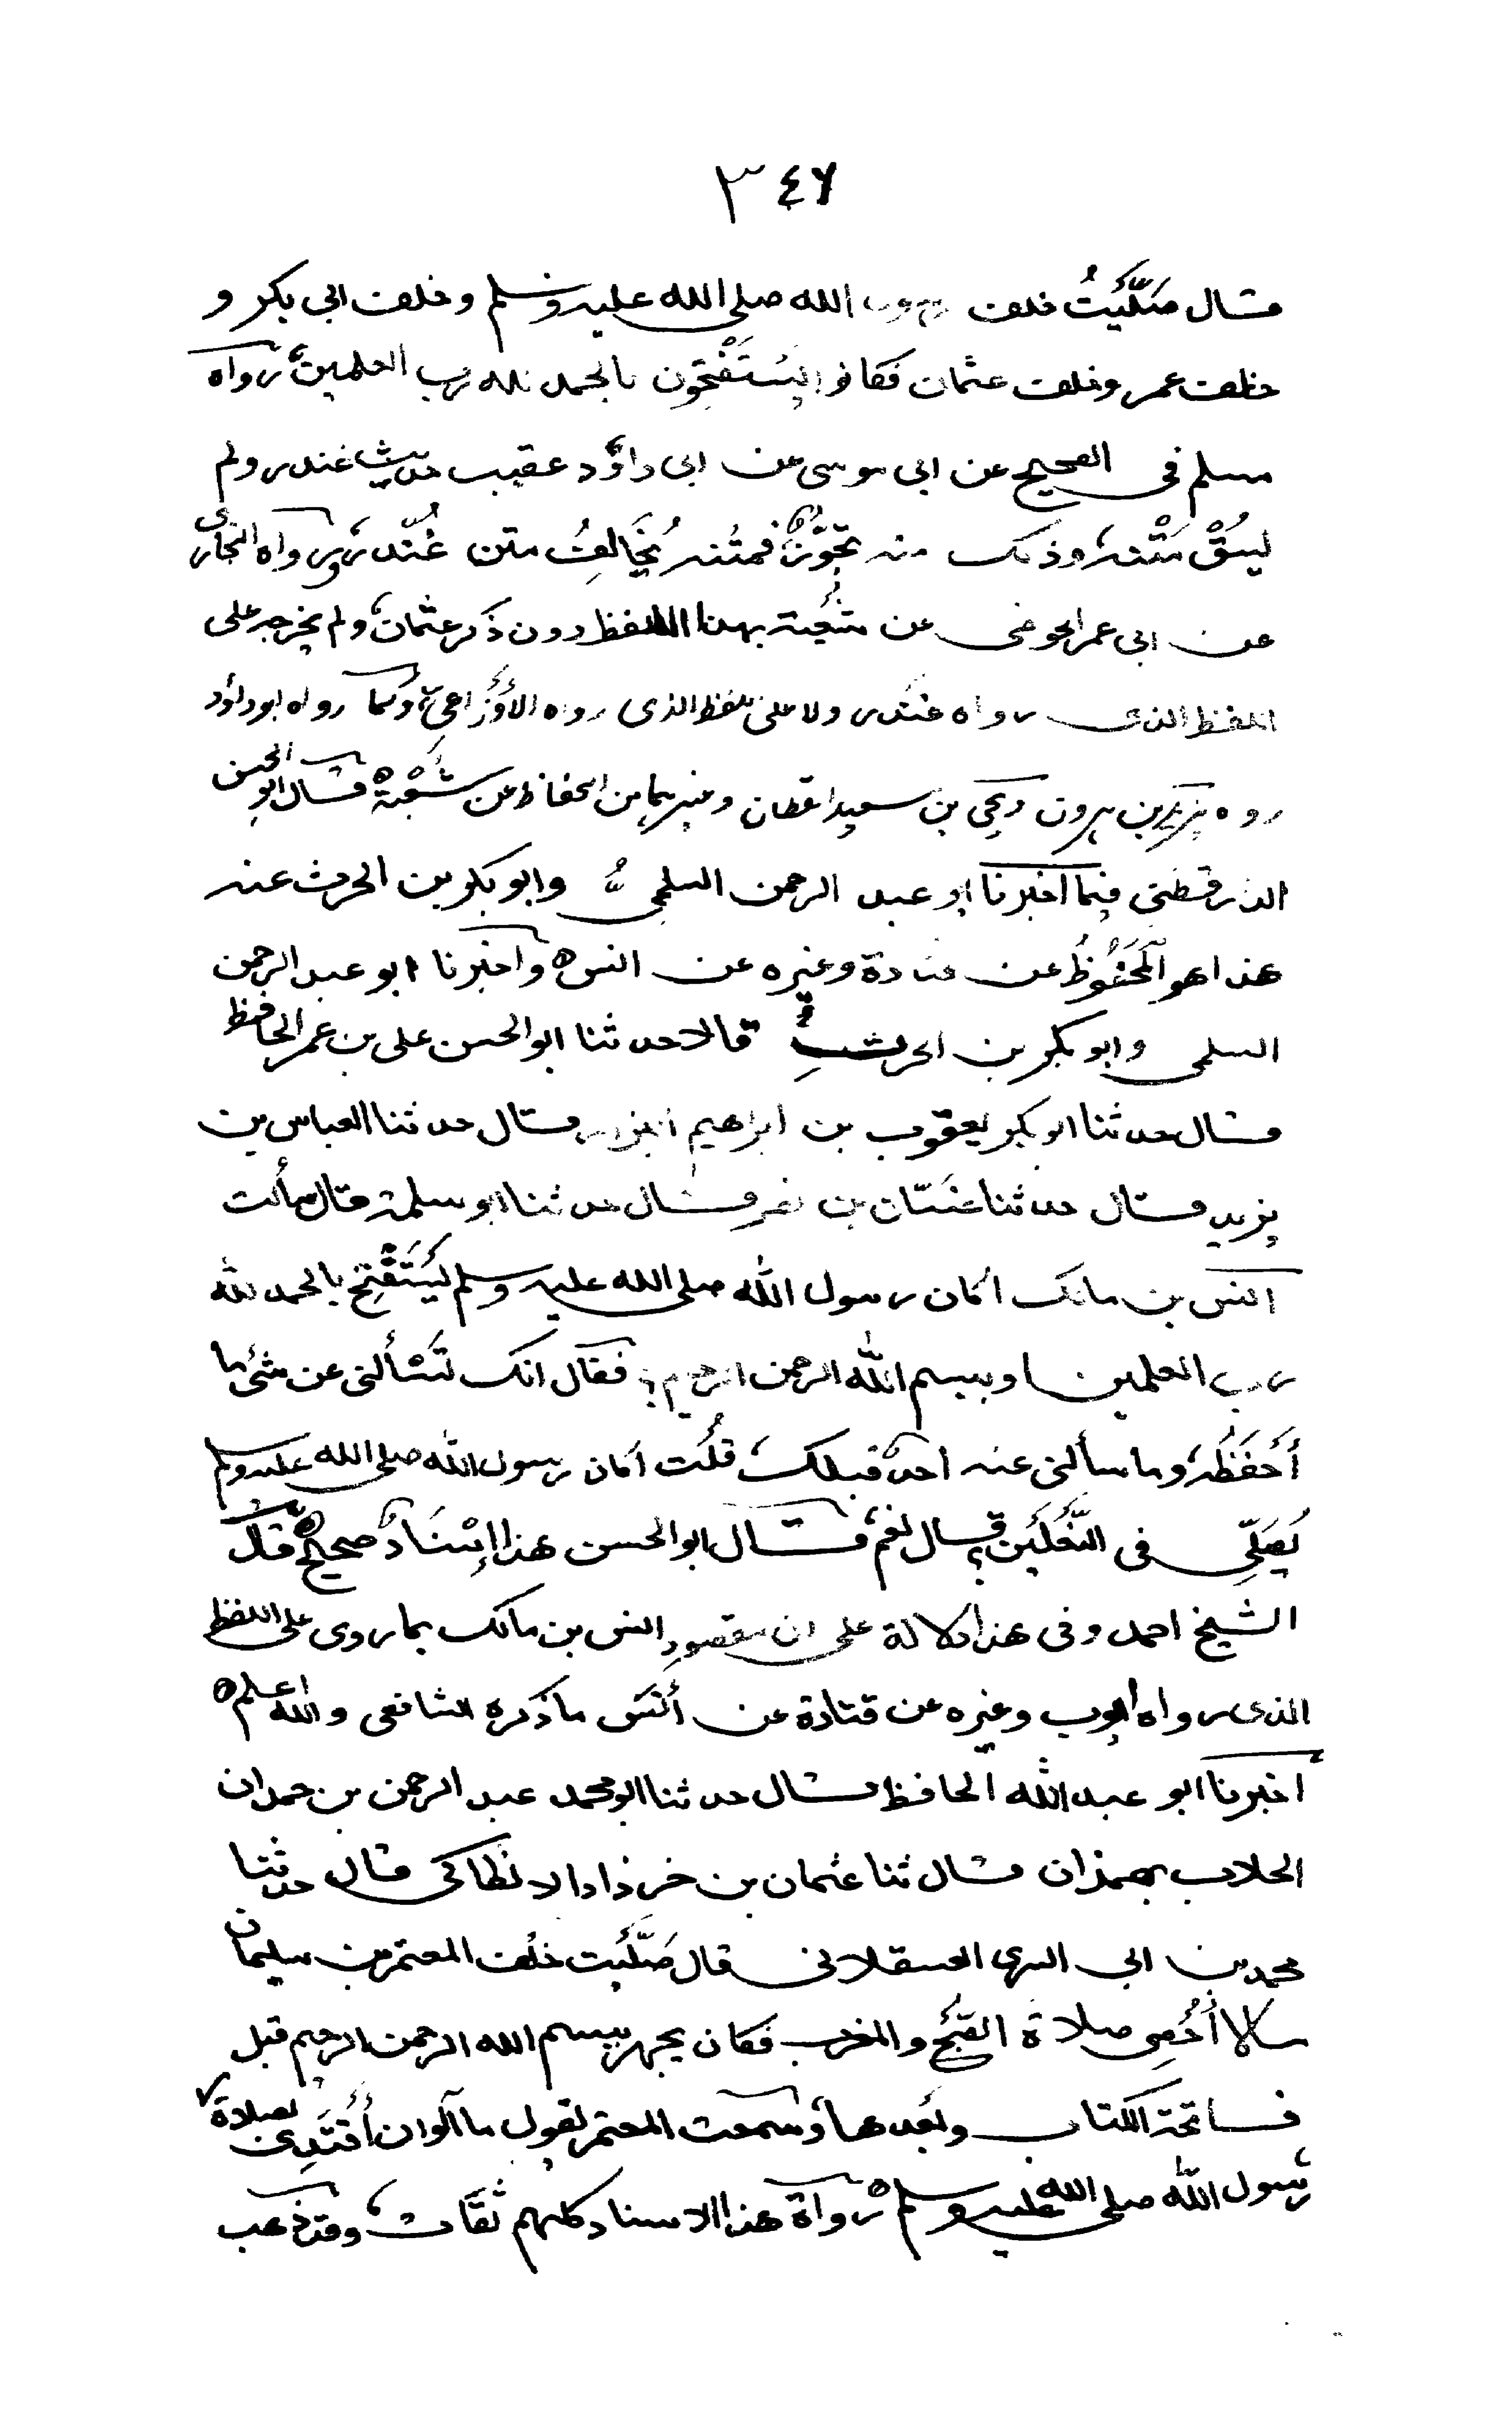 ٣٤٦
قال صَلَّيْتُ خلف رسول الله صلى الله عليه وسلم وخلف ابى بكر و
خلف عمر وخلف عثمان فكانوا يَسْتَفْتِحُون بالحمد لله رب العلمين، رواه
مسلم فى الصحيح عن ابى موسى عن ابى داؤد عقيب حديث غندر ولم
يَسُقْ مَتْنَه، وذلك منه تجَوُّزٌ فمَتْنه يُخَالِفُ متن غُنْدر، ورواه البخارى
عن ابى عمر الحوضى عن شُعْبة بهذا اللفظ دون ذكر عثمان، ولم يخرجه على
اللفظ الذى رواه غندر ولا على لفظ الذى رواه الأَوْزَاعى، وكما رواه ابو داؤد
رواه يزيد بن هرون ويحيى بن سعيد القطان وغيرهما من الحفاظ عن شُعْبة ٥ قال ابو الحسن
الدارقطنى فيما اخبرنا ابو عبد الرحمن السلمى وابو بكر بن الحرث عنه
هذا هو المَحْفُوْظُ عن قتادة وغيره عن انس ٥ واخبرنا ابو عبد الرحمن
السلمى وابو بكر بن الحرث قالا حدثنا ابو الحسن على بن عمر الحافظ
قال حدثنا ابو بكر يعقوب بن ابراهيم البزاز قال حدثنا العباس بن
يزيد قال حدثنا غَسّان بن مضر قال حدثنا ابو سلمة قال سألت
انس بن مالك أكان رسول الله صلى الله عليه وسلم يَسْتَفْتِح بالحمد لله
رب العلمين او ببسم الله الرحمن الرحيم؟ فقال انك لَتَسْألنى عن شئ ما
أَحْفَظُه، وما سألنى عنه احد قبلك، قلت أكان رسول الله صلى الله عليه وسلم
يُصَلِّى فى النَّعْلَيْن؟ قال نعم، قال ابو الحسن هذا إسْنَادٌ صحيح ٥ قال
الشيخ احمد وفى هذا دلالة على ان مقصود انس بن مالك بما روى على اللفظ
الذى رواه ايوب وغيره عن قتادة عن أنس ما ذكره الشافعى والله اعلم ٥
اخبرنا ابو عبد الله الحافظ قال حدثنا ابو محمد عبد الرحمن بن حمدان
الجلاب بهمذان قال ثنا عثمان بن خرزاذ الانطاكى قال حدثنا
محمد بن ابى السرى العسقلانى قال صَلَّيْت خلف المعتمر بن سليمان
ما لا أُحْصى صلاة الصُّبْح والمغرب فكان يجهر ببسم الله الرحمن الرحيم قبل
فاتحة الكتاب وبعدها وسمعت المعتمر يقول ما آلو ان أَقْتَدِى بصلاة
رسول الله صلى الله عليه وسلم ٥ رواة هذا الاسناد كلهم ثقات، وقد ذهب